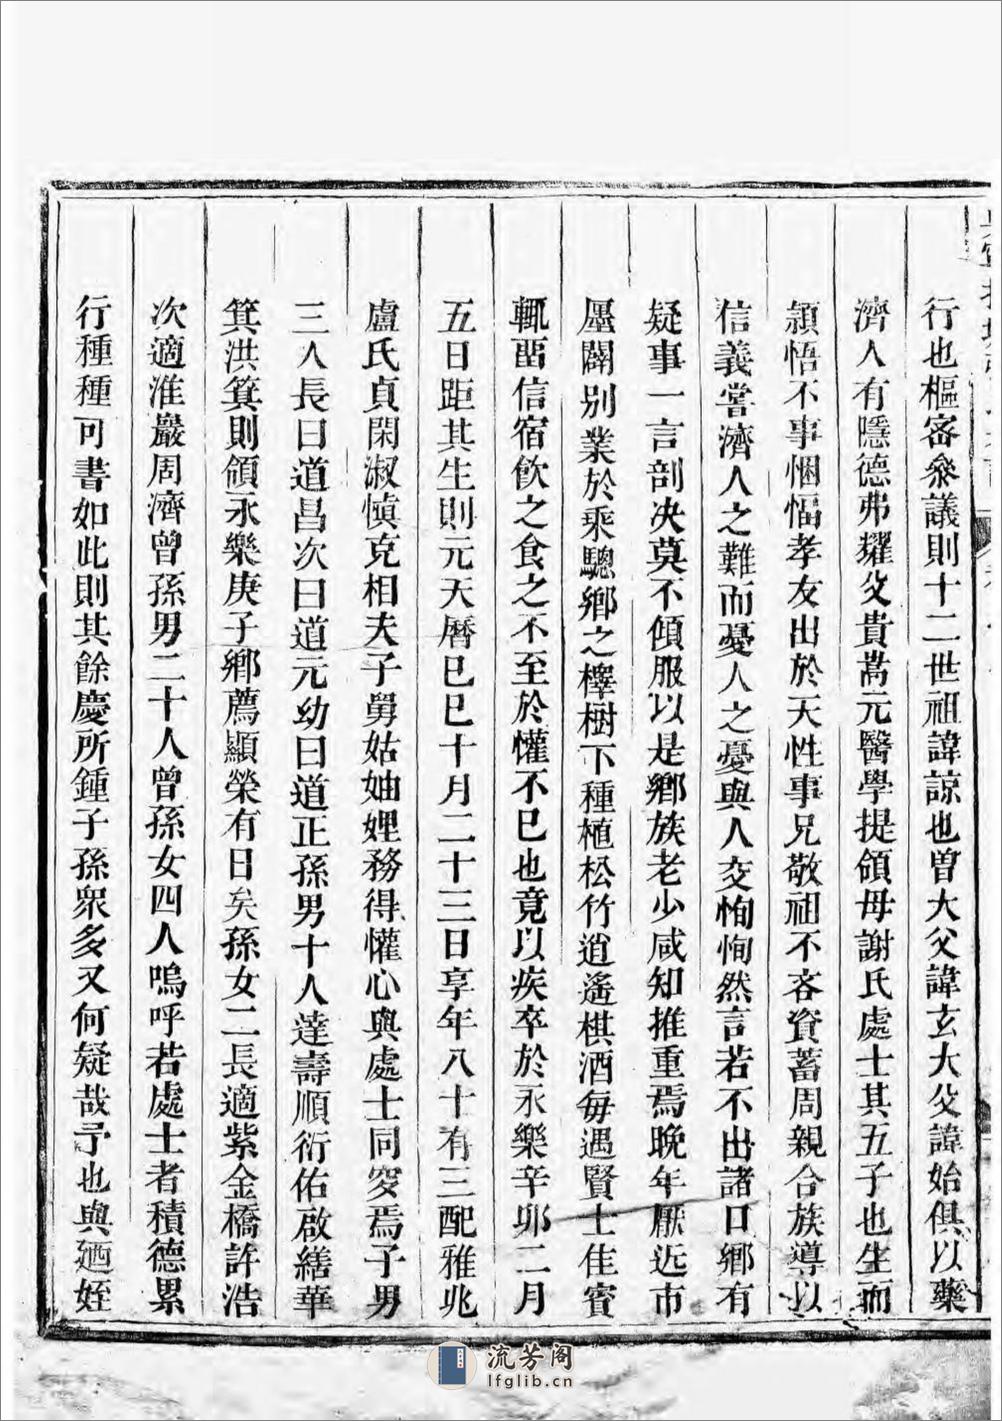 行也樞密叅議則十二世祖諱諒也曽大父諱玄大父諱始俱以藥
濟人有隱德弗耀父貴嵩元醫學提領母謝氏處士其五子也生而
頴悟不事悃愊孝友出於天性事兄敬祖不吝資蓄周親合族導以
信義嘗濟人之難而憂人之憂與人交恂恂然言若不出諸口鄉有
疑事一言剖决莫不傾服以是鄉族老少咸知推重焉晩年厭近市
㕓闢别業於乘驄鄉之檡樹下種植松竹逍遙棋酒每遇賢士佳賓
輒畱信宿飲之食之不至於懽不已也竟以疾卒於永樂辛卯二月
五日距其生則元天曆巳巳十月二十三日享年八十有三配雅兆
盧氏貞閑淑慎克相夫子舅姑妯娌務得懽心與處士同穾焉子男
三人長曰道昌次曰道元幼曰道正孫男十人達壽順衍佑啟繕華
箕洪箕則領永樂庚子鄉薦顯榮有日矣孫女二長適紫金橋許浩
次適淮巖周濟曾孫男二十人曾孫女四人嗚呼若處士者積德累
行種種可書如此則其餘慶所鍾子孫衆多又何疑哉予也與廼姪
流芳阁
lfglib.cn